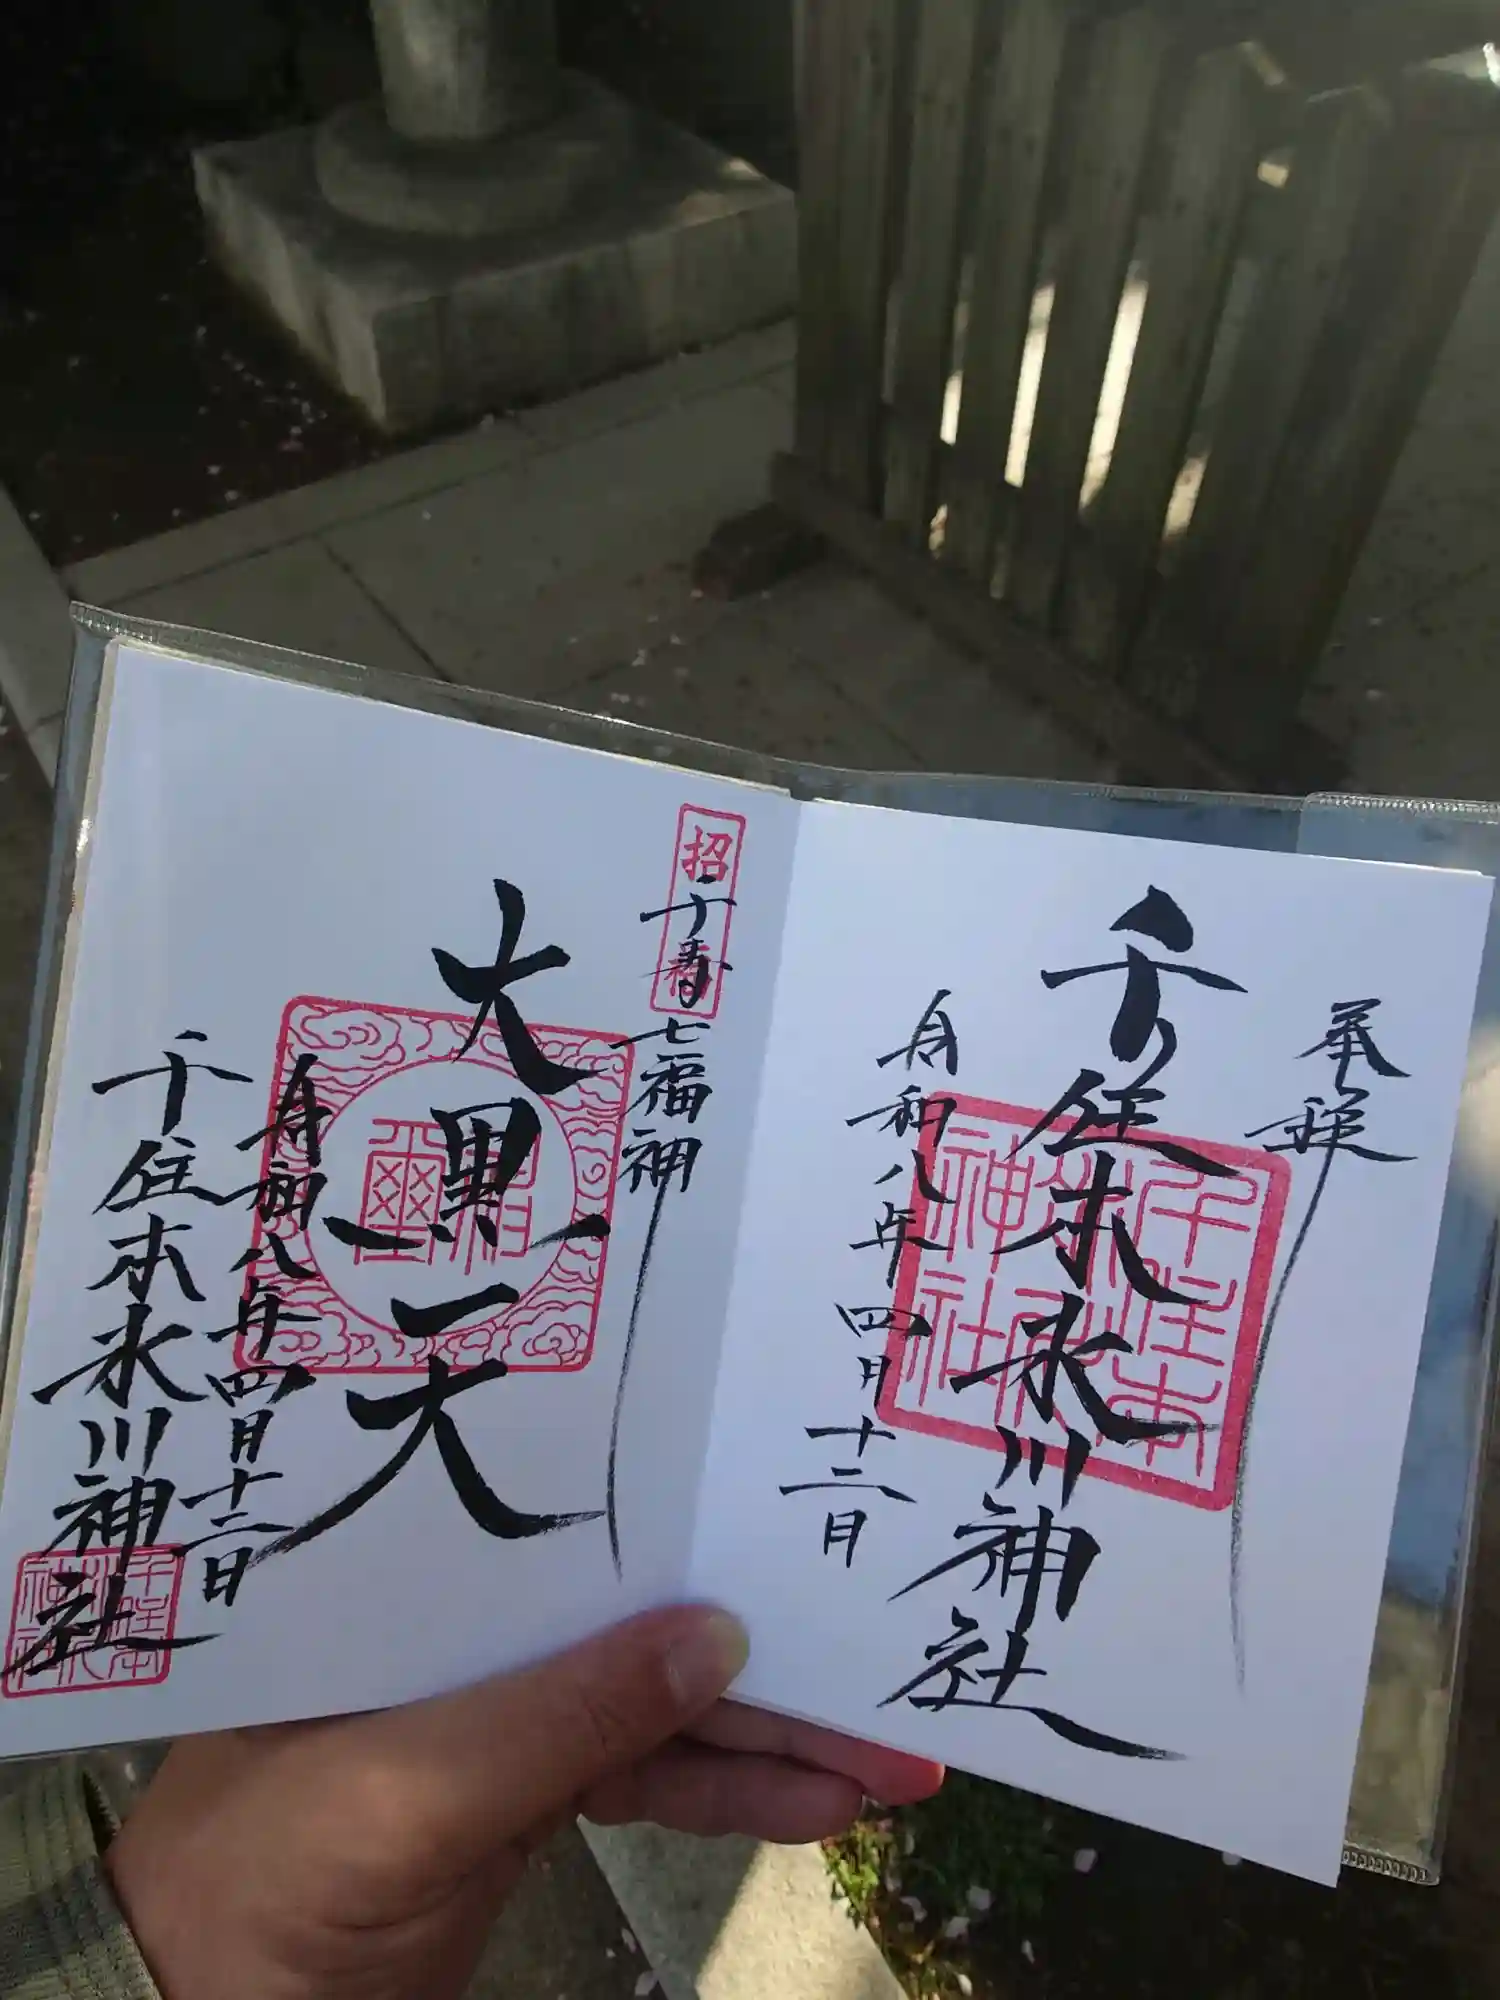 奉拝
千住本氷川神社
令和八年四月十二日
千住本氷川神社
招福
千寿七福神
大黒天
令和八年四月十二日
千住本氷川神社
千住本氷川神社